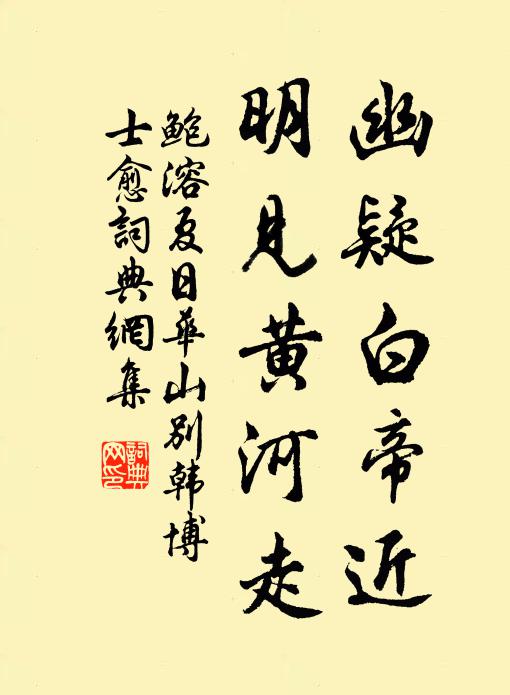 幽疑白帝近
明見黃河走
鮑溶夏日華山別韓博
士愈詞典網集
詞典
网印